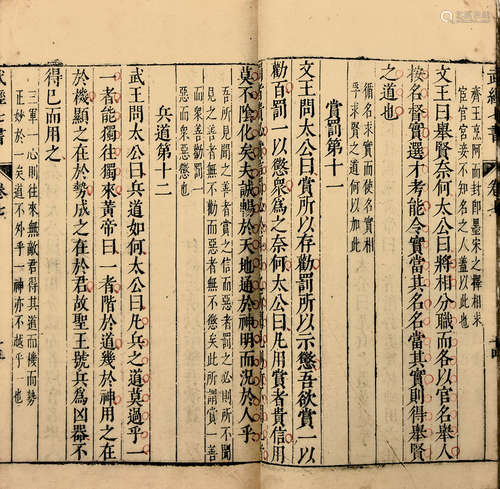 齊王烹阿而封即墨宋之釋
官官官妾不知名之人蓋以此
也
文王曰舉賢奈何太公曰將相分職而各以官名舉人
按名督實選才考能令實當其名名當其實則得舉賢
之道也
循名求實而使名實相
孚求賢之道何以加此
賞罰第十一
文王問太公曰賞所以存勸罰所以示懲吾欲賞一以
勸百罰一以懲衆爲之奈何太公曰凡用賞者貴信用
莫不陰化矣夫誠暢於天地通於神明而況於人乎
吾所見聞之善者賞之信而惡者罰之必則所不聞
見之善者無不勸而惡者無不懲矣此所謂賞一善
而衆善勸罰一
惡而衆惡懲也
兵道第十二
武王問太公曰兵道如何太公曰凡兵之道莫過乎一
一者能獨往獨來黃帝曰一者階於道幾於神用之在
於機顯之在於勢成之在於君故聖王號兵爲凶器不
得已而用之
三軍一心則往來無敵君得其道而機而勢
正妙於一矣道不外乎一神亦不越乎一也
武經七書
卷七